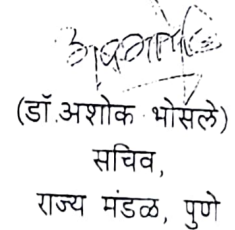 (डॉ.अशोक भोसले)
सचिव,
राज्य मंडळ, पुणे